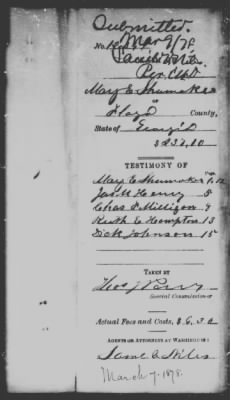 Submitted.
Mar 9/78
No.
Mary E Shumaker
OF
Floyd County,
State of Georgia
TESTIMONY OF
Mary E Shumaker
Jas M Henry 5
Chas P Milligan 9
Ruth E Hempton 13
Dick Johnson 15
TAKEN BY
Special Commissioner
Actual Fees and Costs, $
AGENTS OR ATTORNEYS AT WASHINGTON
March 7. 1878.